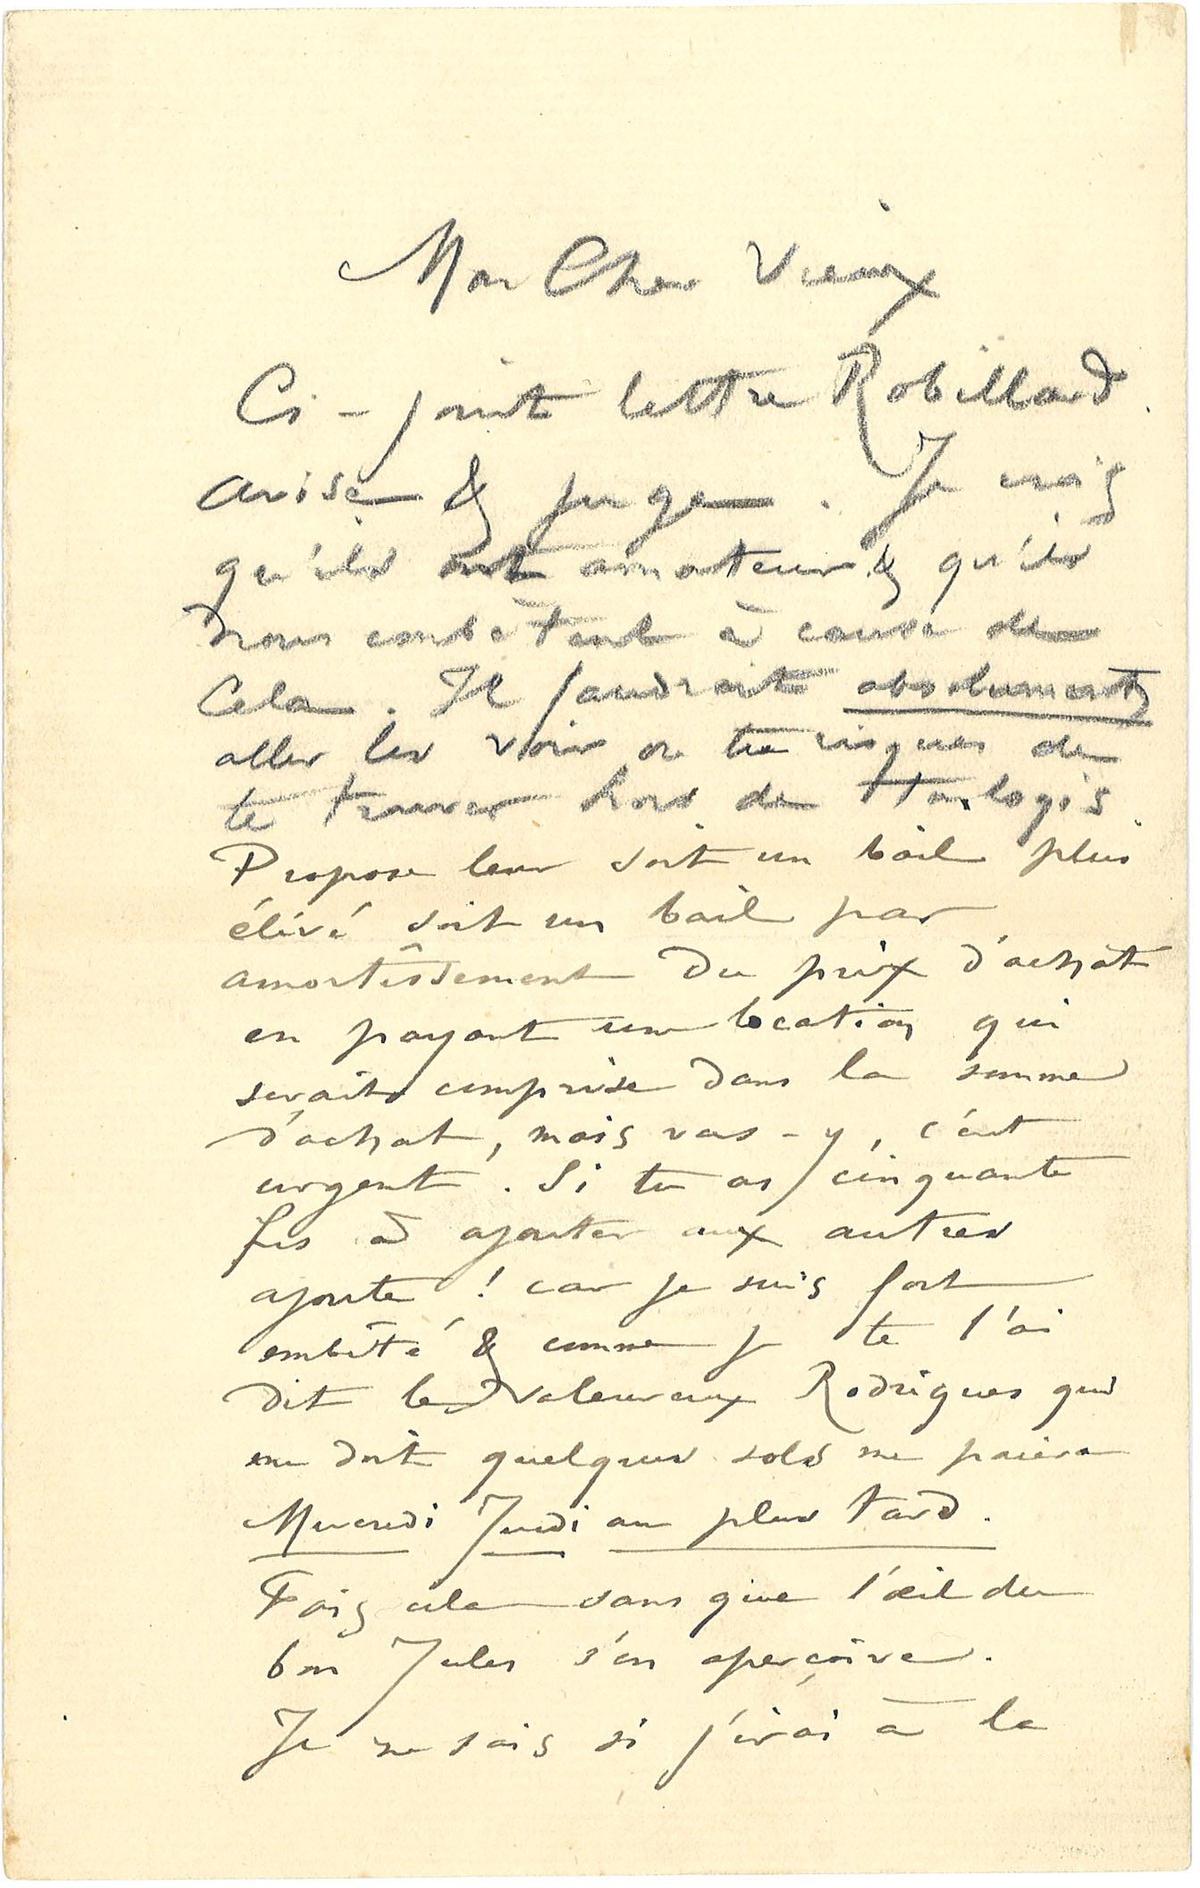 Mon Cher Vieux
Ci-joint lettre Robillard.
avise & juge. Je crois
qu'ils ont amateur & qu'ils
nous embêtent à cause de
Cela. Il faudrait absolument
aller les voir ou tu risques de
te trouver hors de ton logis
Propose leur soit un bail plus
élevé soit un bail par
amortissement du prix d'achat
en payant une location qui
serait comprise dans la somme
d'achat, mais vas-y, c'est
urgent. Si tu as cinquante
frs à ajouter aux autres
ajoute ! car je suis fort
embêté & comme je te l'ai
dit le valeureux Rodrigues qui
me doit quelques sols me paiera
Mercredi Jeudi au plus tard.
Fais cela sans que l'œil du
bon Jules s'en aperçoive.
Je ne sais si j'irai à la